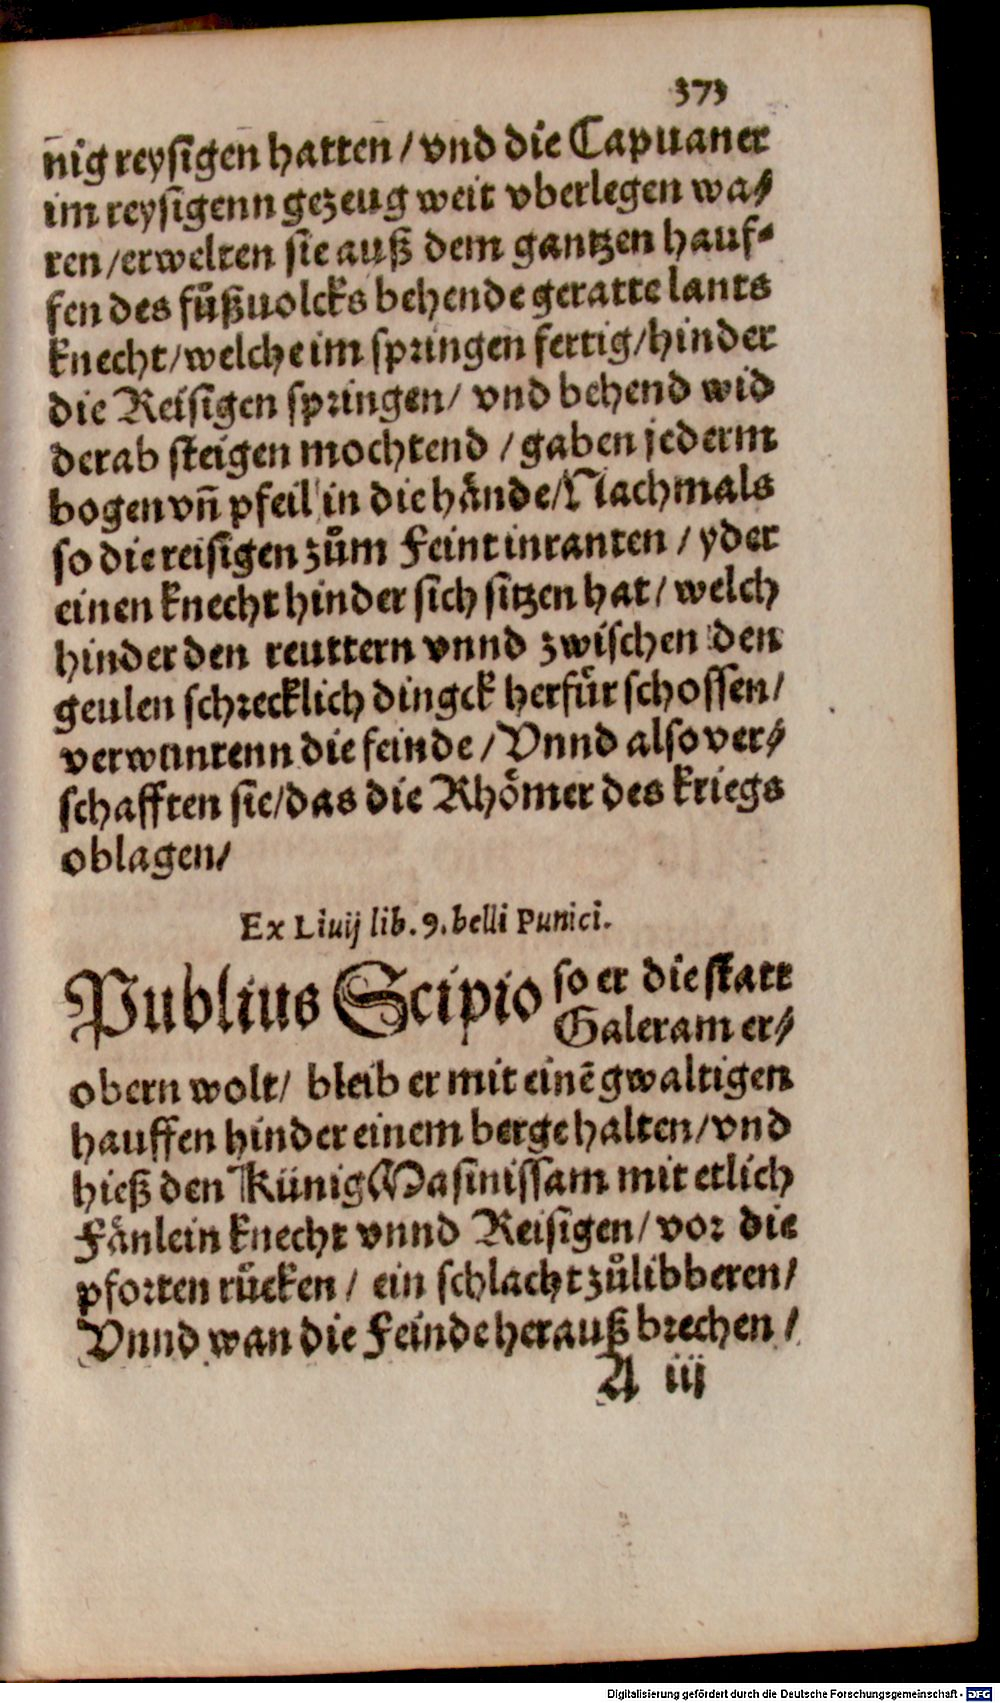 373
nig reysigen hatten / vnd die Capuaner
im reysigenn gezeug weit vberlegen wa⸗
ren / erwelten sie auß dem gantzen hauf⸗
fen des fůßuolcks behende geratte lants
knecht / welche im springen fertig / hinder
die Reisigen springen / vnd behend wid
derab steigen mochtend / gaben jederm
bogen vn̄ pfeil in die hände / Nachmals
so die reisigen zům Feint inranten / yder
einen knecht hinder sich sitzen hat / welch
hinder den reuttern vnnd zwischen den
geulen schrecklich dingck herfür schossen /
verwuntenn die feinde / Vnnd also ver⸗
schafften sie / das die Rhömer des kriegs
oblagen /
Ex Liuij lib. 9. belli Punici.
Publius Scipio so er die statt
Galeram er⸗
obern wolt / bleib er mit einē gwaltigen
hauffen hinder einem berge halten / vnd
hieß den Künig Masinissam mit etlich
Fänlein knecht vnnd Reisigen / vor die
pforten růcken / ein schlacht zůlibberen /
Vnnd wan die Feinde herauß brechen /
A iij
Digitalisierung gefördert durch die Deutsche Forschungsgemeinschaft - DFG